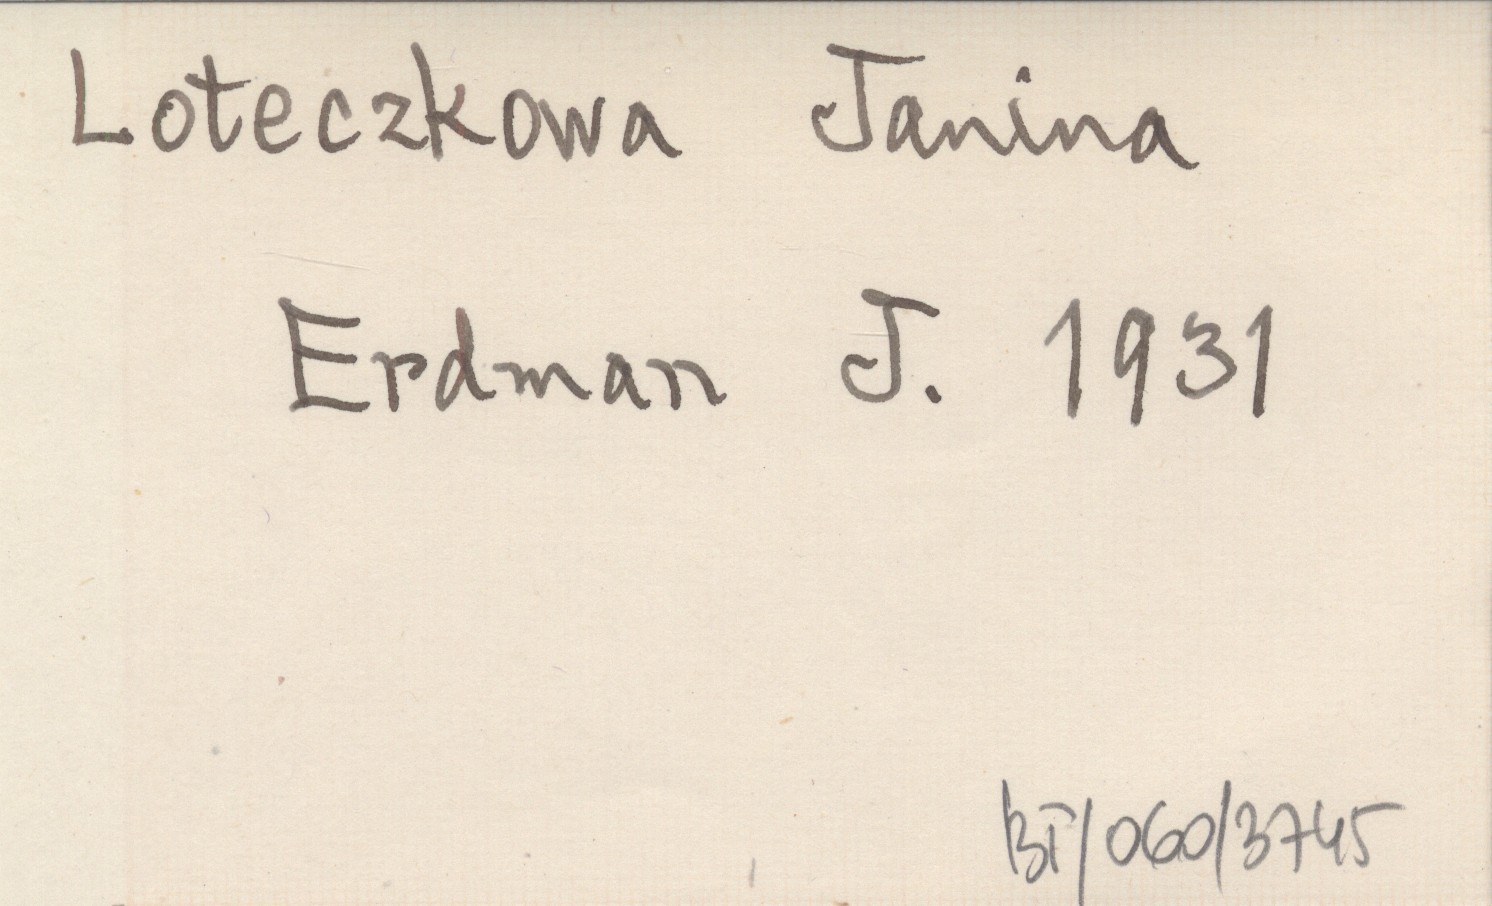 Loteczkowa Janina
Erdman J. 1931
BT/060/3745